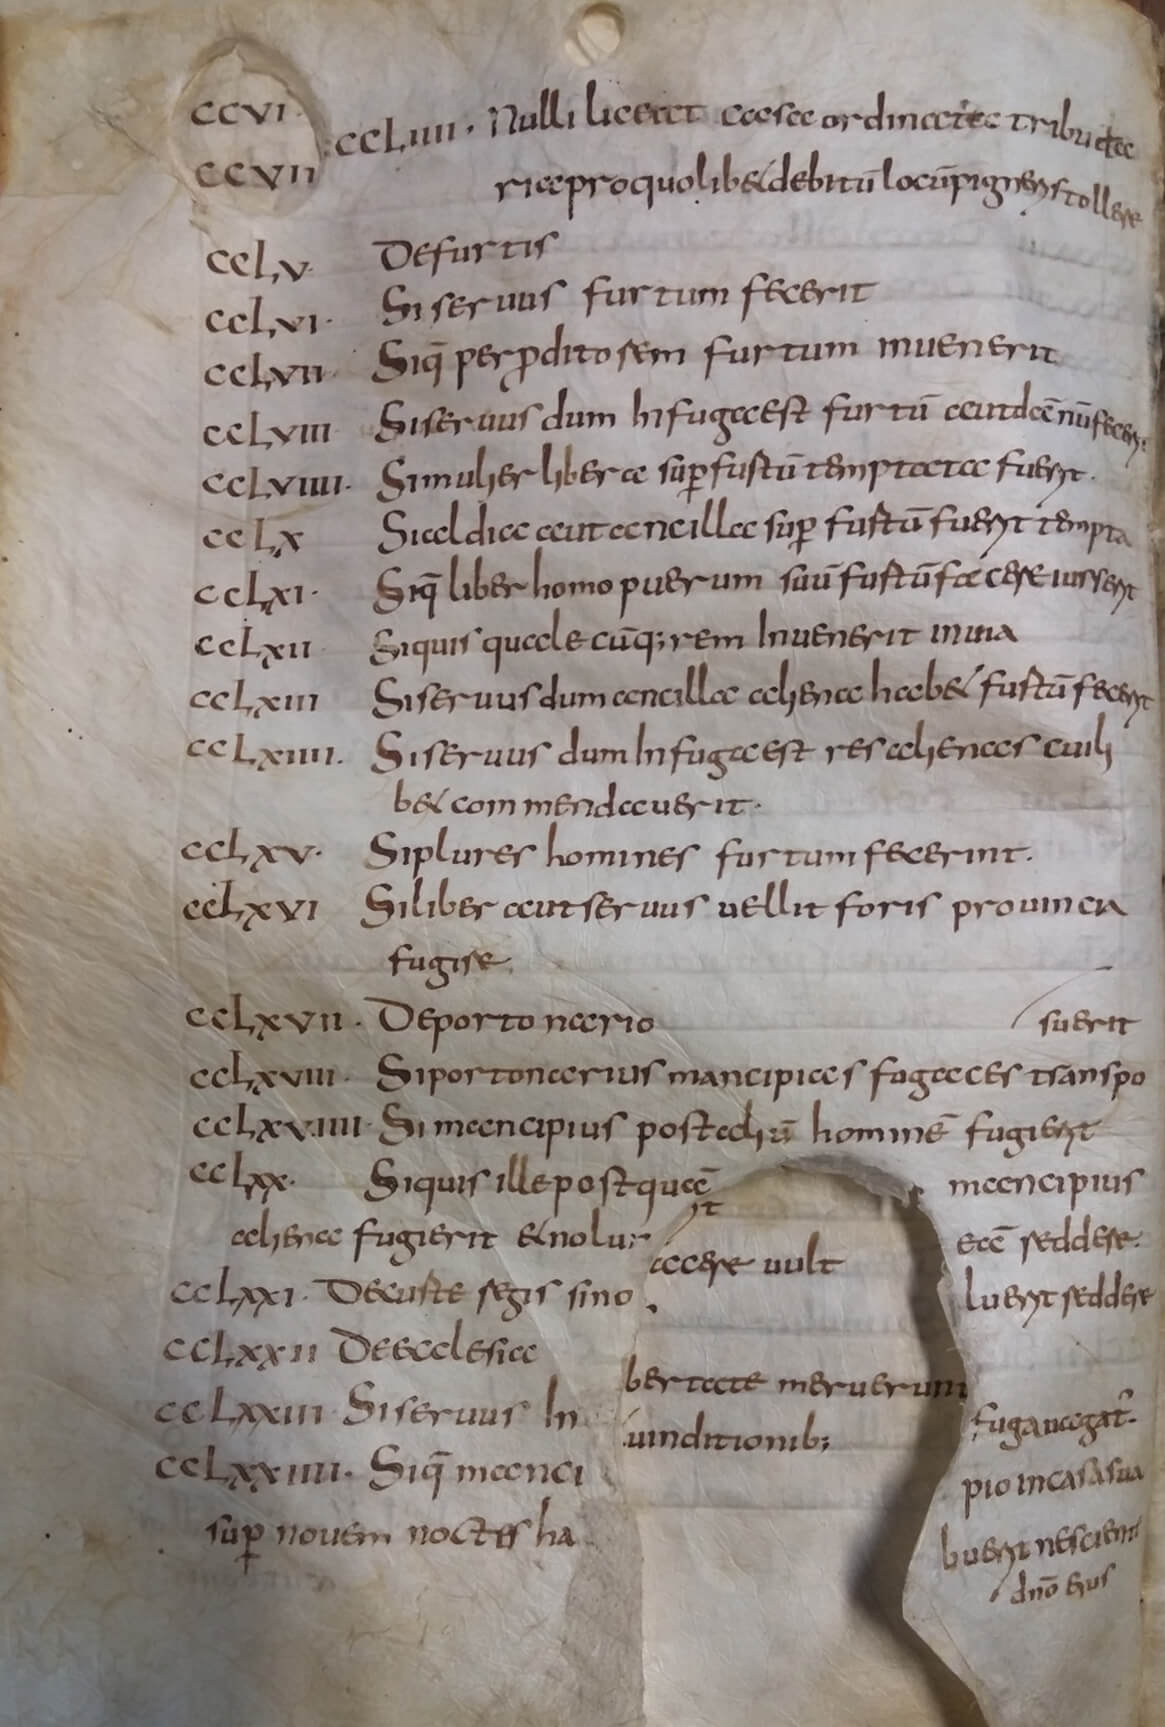 CCVI
CCLIIII. Nulli liceat casa ordinata tributa
CCVII
ria pro quolib& debitū locū pigneris tollere
CCLV. De furtis
CCLVI. Si seruus furtum fecerit
CCLVII. Siq̄ per p̄ditorem furtum inuenerit
CCLVIII Si seruus dum In fuga est furtū aut dānū fecerit
CCLVIIII. Si mulier libera sup̄ furtū temptata fuerit.
CCLX Si aldia aut ancilla sup̄ furtū fuerit tempta
CCLXI. Siq̄ liber homo puerum suū furtū facere iusserit
CCLXII Si quis quale cūq; rem Inuenerit in uia
CCLXIII Si seruus dum ancilla aliena hab& furtū fecerit
CCLXIIII. Si seruus dum In fuga est res alienas cuili
b& commendauerit.
CCLXV. Si plures homines furtum fecerint.
CCLXVI Si liber aut seruus uellit foris prouincia
fugire
CCLXVII. De portonario
suerit
CCLXVIII. Si portonarius mancipias fugaces transpo
CCLXVIIII. Si mancipius post aliū hominē fugierit
CCLXX. Si quis ille post quā mancipius
aliena fugierit & nolu it acere uult eā reddere.
CCLXXI. De curte regis si no luerit reddere
CCLXXII De ecclesia
CCLXXIII Si seruus In bertate meruerunt fuga negat.
uinditionib;
CCLXXIIII. Siq̄ manci pio in casa sua
sup̄ nouem noctes ha buerit nescient
dn̄o eius